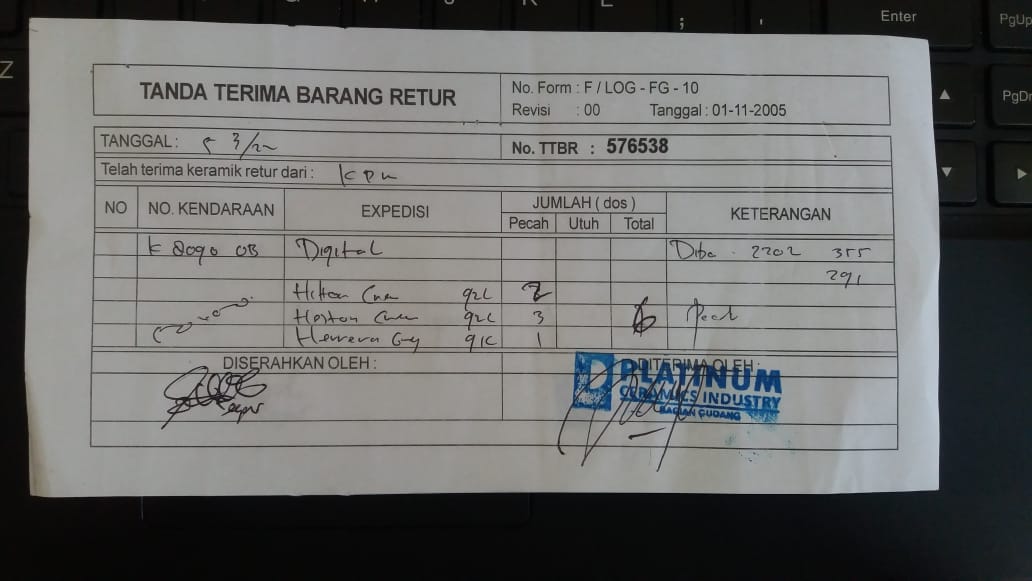 TANDA TERIMA BARANG RETUR
No. Form : F / LOG - FG - 10
Revisi : 00 Tanggal : 01-11-2005
TANGGAL : 5 3/22
No. TTBR : 576538
Telah terima keramik retur dari :
NO NO. KENDARAAN EXPEDISI JUMLAH ( dos ) KETERANGAN
Pecah Utuh Total
K 8090 OB Digital 2202 355
291
Hilton 92C 2
Heston 92C 3 6
Herrera 91C 1
DISERAHKAN OLEH : DITERIMA OLEH :
PLATINUM
CERAMICS INDUSTRY
BAGIAN GUDANG